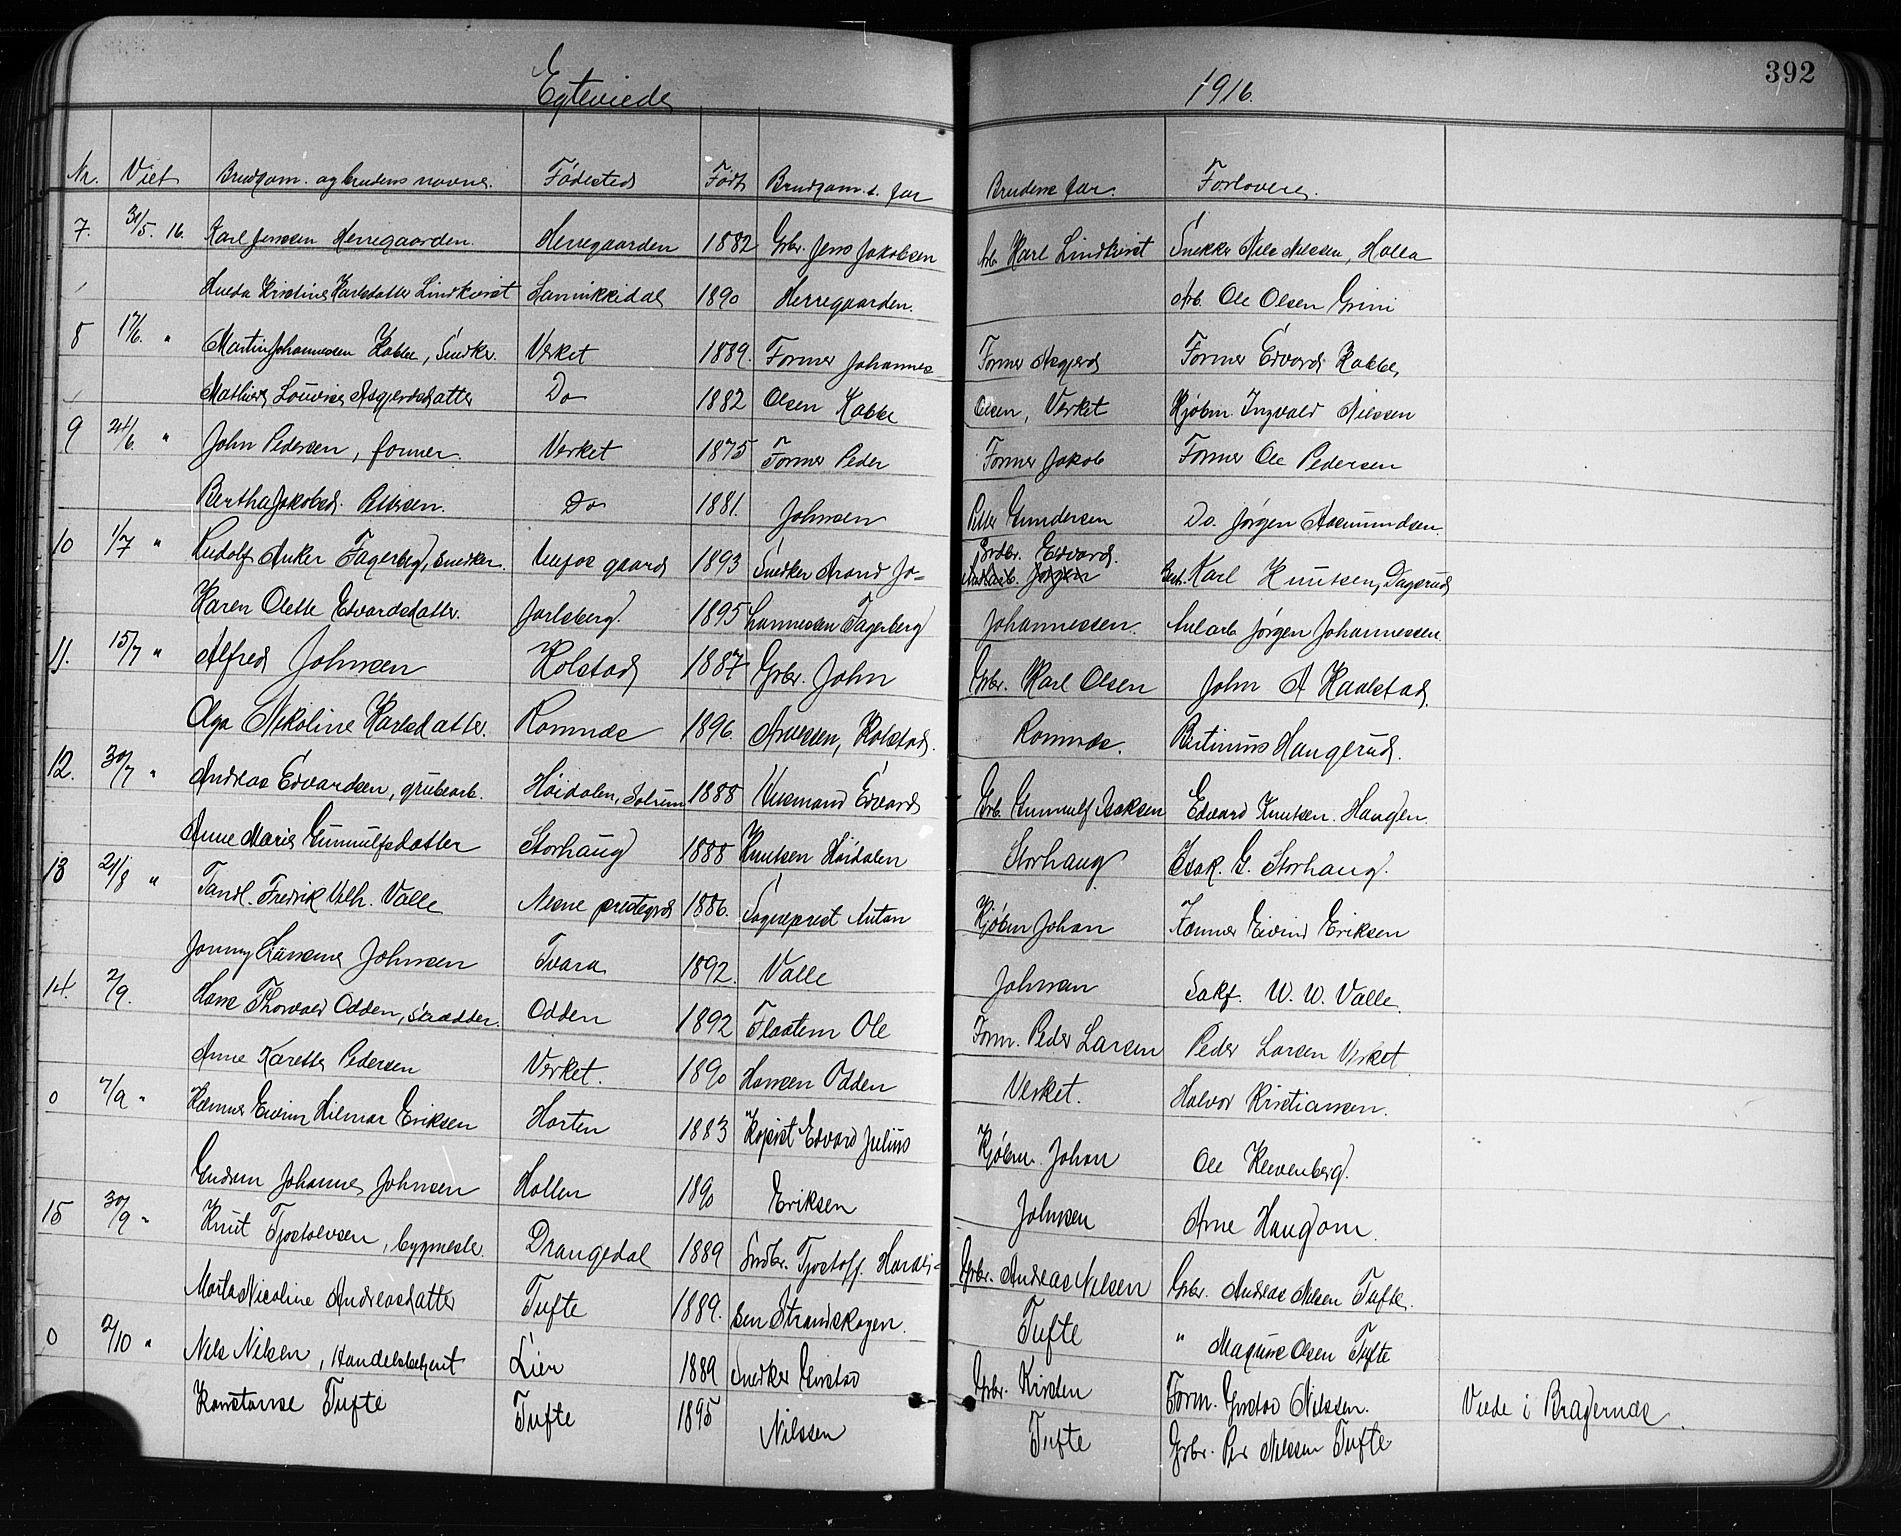 392
Egteviede 1916.
Nr. Viet Brudgom. og brudens navne. Fødested Født Brudgom.s. far Brudens far. Forlovere.
7. 31/5. 16. Karl Jenssen Herregaarden. Herregaarden 1882 Gbr. Jens Jakobsen Arb. Karl Lindkvist Snekker Nils Nilssen, Holla
Hulda Kristine Karlsdatter Lindkvist Sannikkidal 1890 Herregaarden. Arb. Ole Olsen Grini
8 17/6. " Martin Johannessen Kabbe, Snedker. Verket 1889. Former Johannes Former Asgjerd Former Edvard Kabbe,
Mathilde Louise Asgjerdsdatter Do 1882 Olsen Kabbe Olsen, Verket Kjøbm Ingvald Nilssen
9 24/6. " John Pedersen, former. Verket 1875 Former Peder Former Jakob Former Ole Pedersen
Bertha Jakobsd. Pettersen. Do 1881. Johnsen Petter Gundersen Do. Jørgen Aasmundsen.
10 1/7 " Ludolf Anker Fagerberg, snedker. Ulefos gaard 1893 Snedker Arand Jo- Grdbr. Edvard Karl Knutsen, Dagsrud
Karen Olette Edvardsdatter. Jarlsberg. 1895 hannessen Fagerberg Johannessen. Anlarb Jørgen Johannessen.
11. 15/7 " Alfred Johnsen Kolstad 1887 Grbr. John Grbr. Karl Olsen John A Kaalstad.
Olga Nikoline Karlsdatter. Romnes 1896. Andersen, Kolstad. Romnes. Bertinius Haugerud.
12. 30/7 " Andreas Edvardsen, grubearb. Høidalen, Solum 1888 Husmand Edvard Grb. Gunnulf Isaksen Edvard Knutsen. Haugen.
Anne Marie Gunnulfsdatter Storhaug 1888 Knutsen Høidalen Storhaug Isak. G. Storhaug.
13 21/8 " Tandl. Fredrik Vilh. Valle Nesne prestegrd 1886. Sogneprest Anton Kjøbm Johan Kæmner Eivind Eriksen
Jonny Johnsen Tvara 1892. Valle Johnsen Sakf. W. W. Valle.
14. 2/9. Hans Thorvald Odden, skrædder. Odden 1892 Flaatem Ole Form. Peder Larsen Peder Larsen Verket
Anne Karette Pedersen Verket. 1890 Hansen Odden Verket. Halvor Kristiansen.
0 7/9 " Kæmner Eivin Hilmar Eriksen Horten 1883 Kopist Edvard Julius Kjøbm. Johan Ole Kleivenberg.
Gudrun Johanne Johnsen Hollen 1890 Eriksen Johnsen Arne Haugom.
15 30/9 " Knut Tjostolvsen, bygmester Drangedal 1889 Grdbr. Tjostolf. Haralt- Grbr. Andreas Nilsen Grbr. Andreas Nilsen Tufte.
Marta Nicoline Andreasdatter Tufte 1889. sen Strandskogen. Tufte " Magnus Olsen Tufte
0 2/10 " Nils Nilsen, Handelsbetjent Lier 1889 Snedker Gustav Grbr. Kirsten Form. Gustav Nilssen. Viede i Bragernes.
Konstanse Tufte Tufte 1895 Nilssen Tufte Grbr. Per Nilssen Tufte